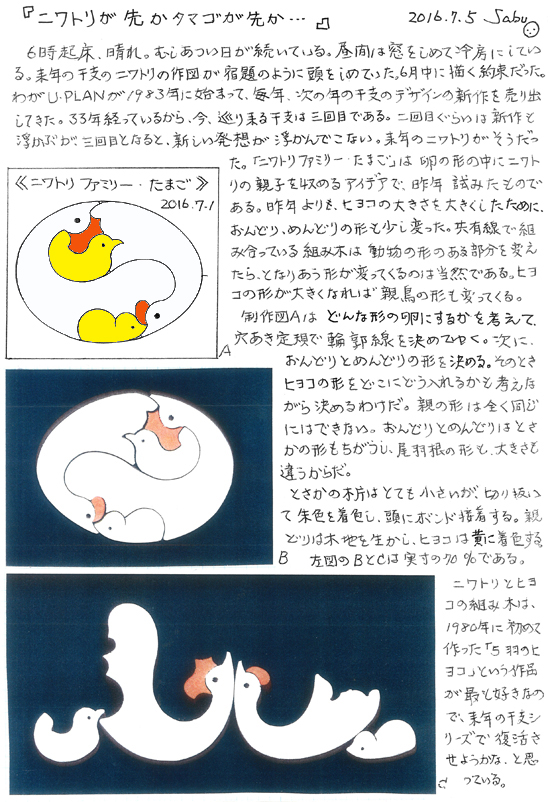 『ニワトリが先かタマゴが先か…』 2016.7.5 Sabu
6時起床、晴れ。むしあつい日が続いている。昼間は窓をしめて冷房にしてい
る。来年の干支のニワトリの作図が宿題のように頭をしめていた。6月中に描く約束だった。
わがU・PLANが1983年に始まって、毎年、次の年の干支のデザインの新作を売り出
してきた。33年経っているから、今、巡り来る干支は三回目である。二回目ぐらいは新作と
浮かぶが、三回目となると、新しい発想が浮かんでこない。来年のニワトリがそうだっ
た。「ニワトリファミリー・たまご」は卵の形の中にニワト
リの親子を収めるアイデアで、昨年試みたもので
ある。昨年よりも、ヒヨコの大きさを大きくしたために、
おんどり、めんどりの形も少し変った。共有線で組
み合っている組み木は動物の形のある部分を変え
たら、となりあう形が変ってくるのは当然である。ヒヨ
コの形が大きくなれば親鳥の形も変ってくる。
《ニワトリ ファミリー・たまご》
2016.7.1
A
制作図Aはどんな形の卵にするかを考えて、
穴あき定規で輪郭線を決めてゆく。次に、
おんどりとめんどりの形を決める。そのとき
ヒヨコの形をどこにどう入れるかも考えな
がら決めるわけだ。親の形は全く同じ
にはできない。おんどりとめんどりはとさ
かの形もちがうし、尾羽根の形も、大きさも
違うからだ。
とさかの木片はとても小さいが、切り抜い
て朱色を着色し、頭にボンド接着する。親
どりは木地を生かし、ヒヨコは黄に着色する。
B 左図のBとCは実寸の70%である。
ニワトリとヒヨ
コの組み木は、
1980年に初めて
作った「5羽のヒ
ヨコ」という作品
が最も好きなの
で、来年の干支シ
リーズで復活さ
せようかな、と思
っている。
C